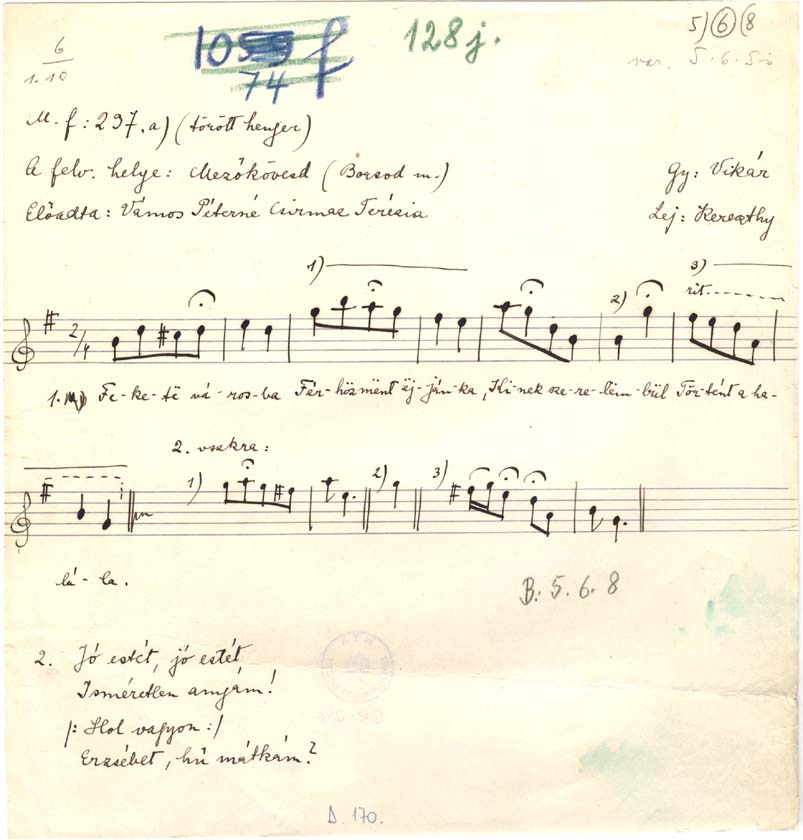 5) 6 (8
6
1.10
74 f
128 j.
var. 5.6.5-i
M. f: 237. a) (törött henger)
A felv. helye: Mezőkövesd (Borsod m.)
Gy: Vikár
Előadta: Vámos Péterné Csirmaz Terézia
Lej: Kereszthy
1)
2)
3)
rit.
2/4
1. Fe-ke-të vá-ros-ba Fér-höz mënt ëj-ján-ka, Ki-nek sze-re-lëm-bül Tör-tént a ha-
2. vsakra:
1)
2)
3)
lá-la.
B: 5. 6. 8
2. Jó estét, jó estét
Isméretlen anyám!
/: Hol vagyon :/
Erzsébet, hű mátkám?
D. 170.